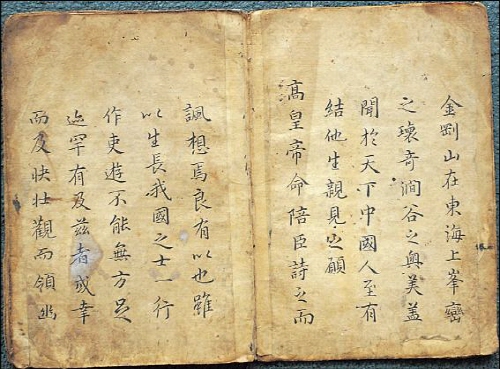 金剛山在東海上峯巒
之瓌奇澗谷之奧美蓋
聞於天下中國人至有
結他生親見之願
高皇帝命陪臣詩之而
諷想焉良有以也雖
以生長我國之士一行
作吏遊不能無方足
迹罕有及茲者或幸
而及快壯觀而領幽